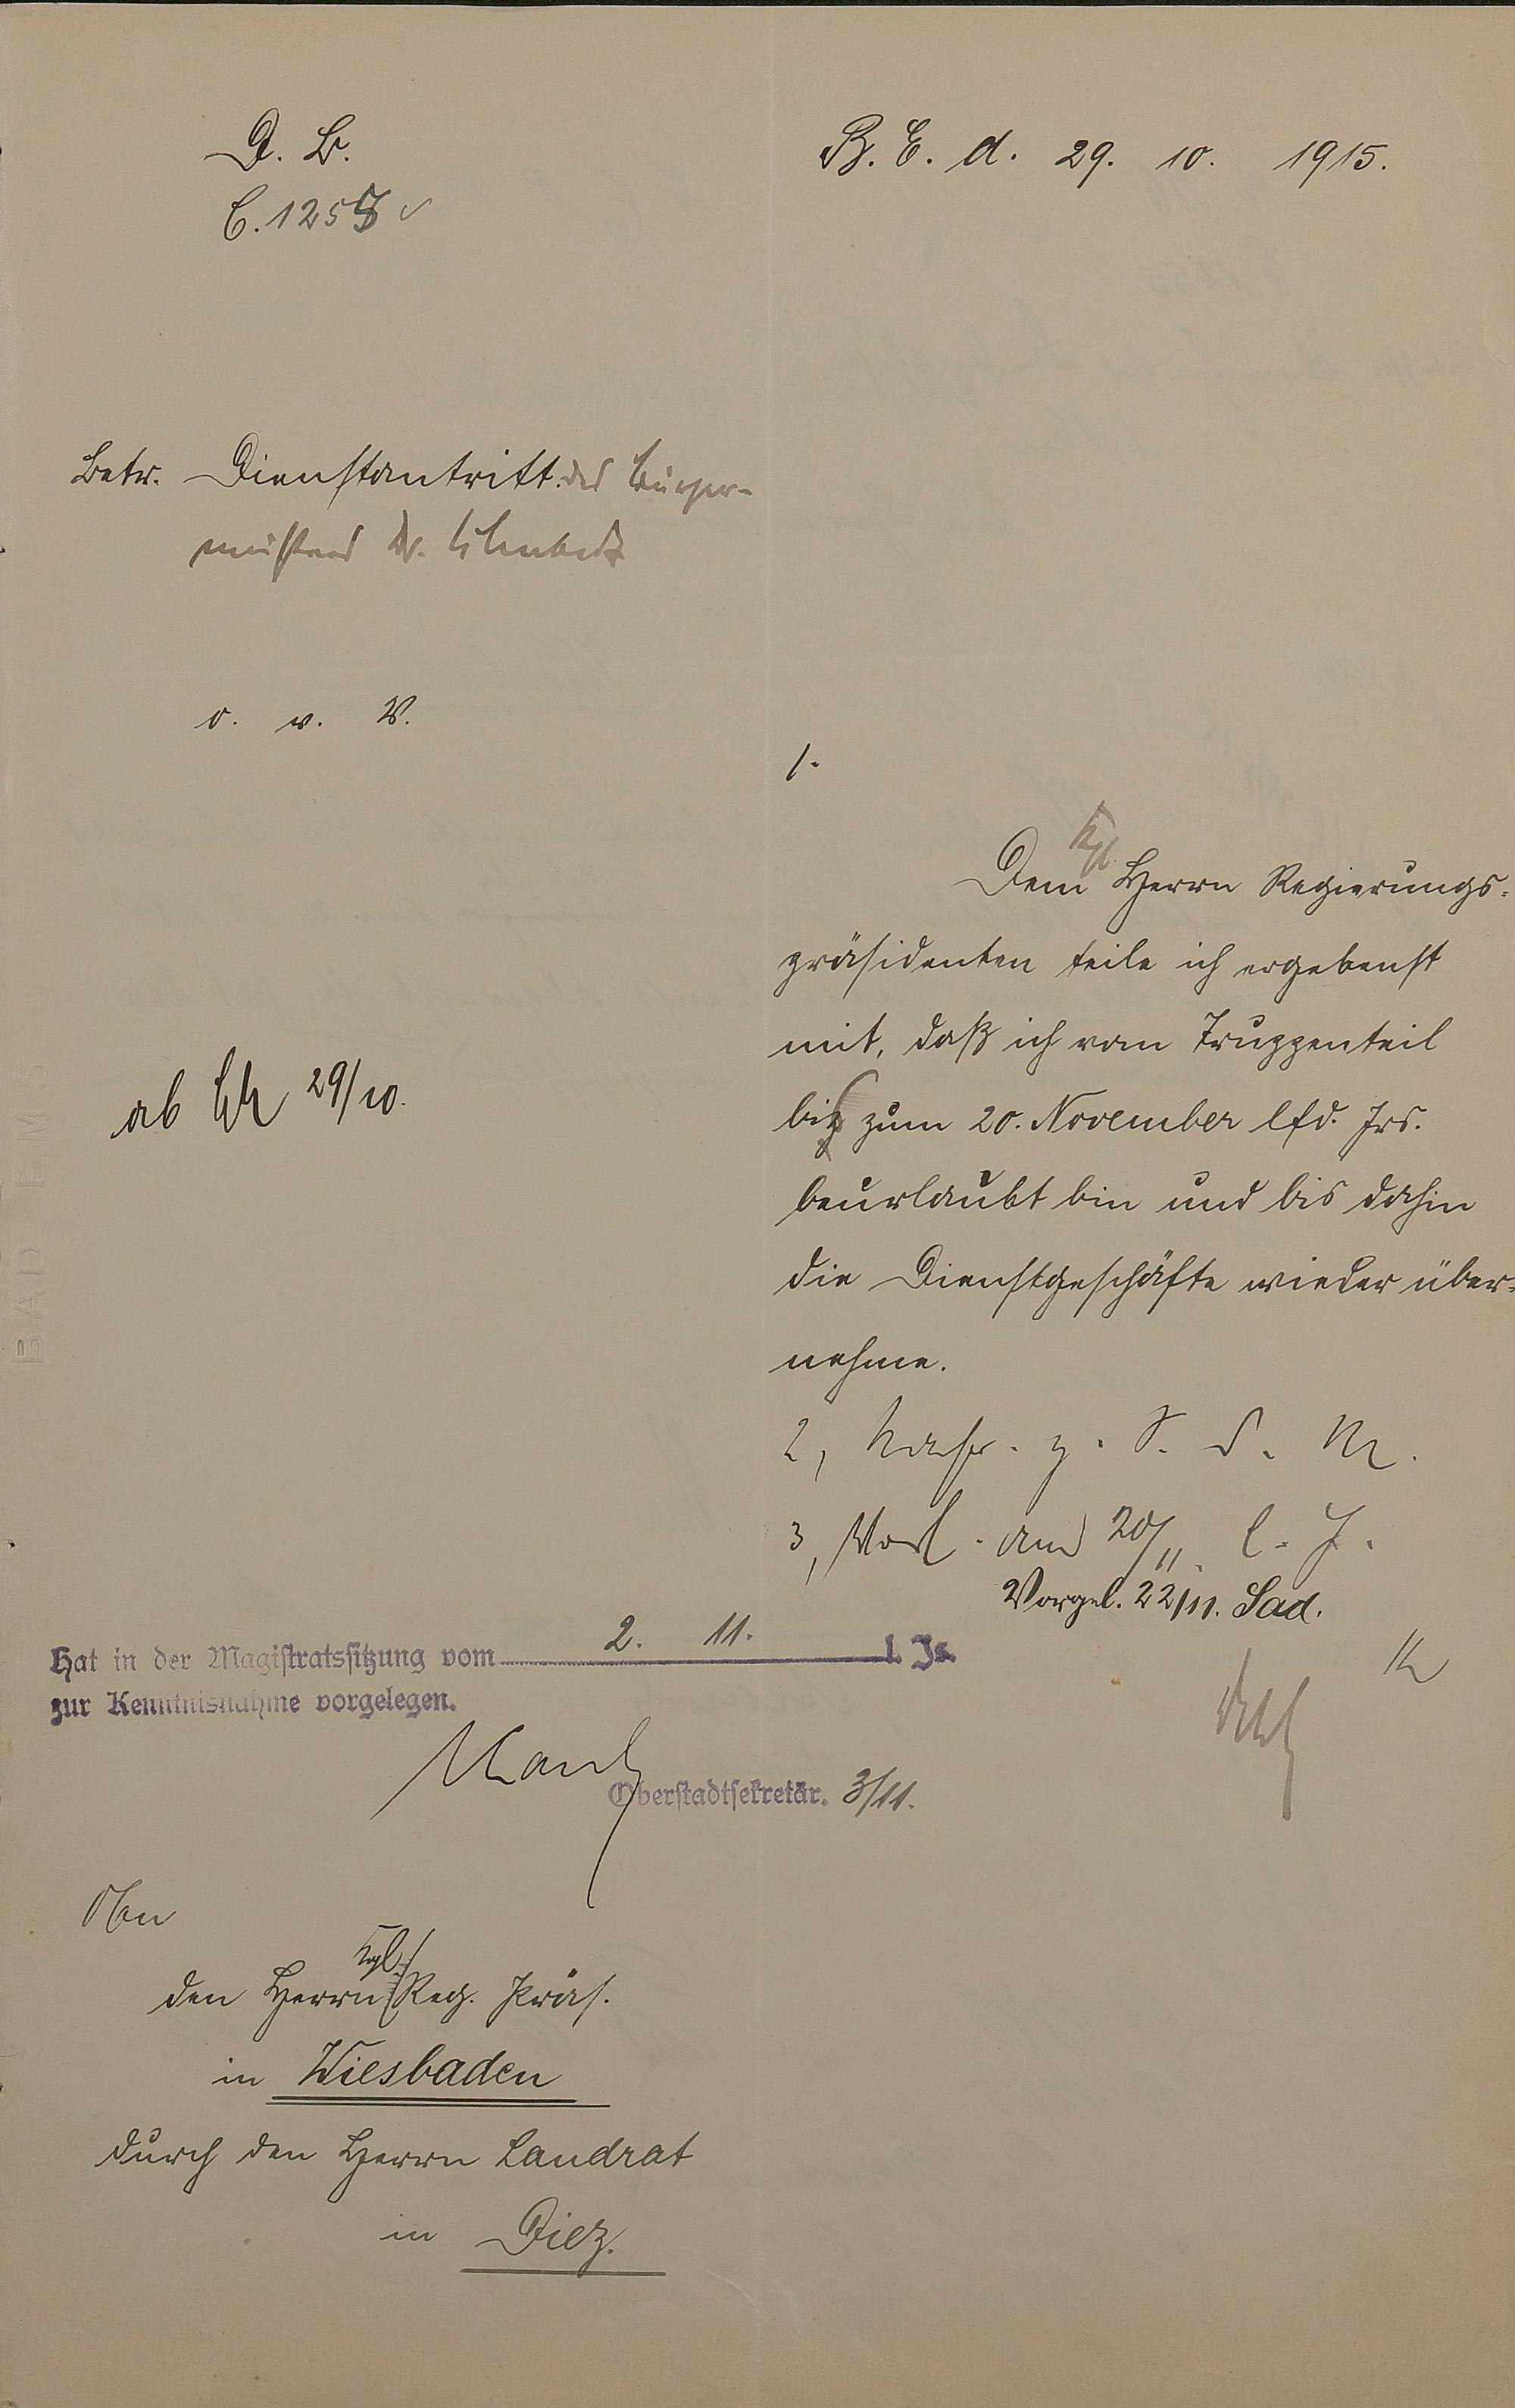 D. B.
C. 1258
B. E. d. 29. 10. 1915.
Betr. Dienstantritt des Bürger-
meisters Dr. Schubert
o. v. V.
1.
Dem Kgl. Herrn Regierungs-
präsidenten teile ich ergebenst
mit, daß ich vom Truppenteil
bis zum 20. November lfd. Jrs.
beurlaubt bin und bis dahin
die Dienstgeschäfte wieder über-
nehme.
ab 29/10.
2, Nachr. z. S. d. M.
3, Vorl. am 20/11. l. J.
Vorgel. 22/11. Sad.
Hat in der Magistratssitzung vom 2. 11. l. Js.
zur Kenntnisnahme vorgelegen.
Oberstadtsekretär. 3/11.
An
den Herrn Kgl. Reg. Präs.
in Wiesbaden
durch den Herrn Landrat
in Diez.
BAD EMS